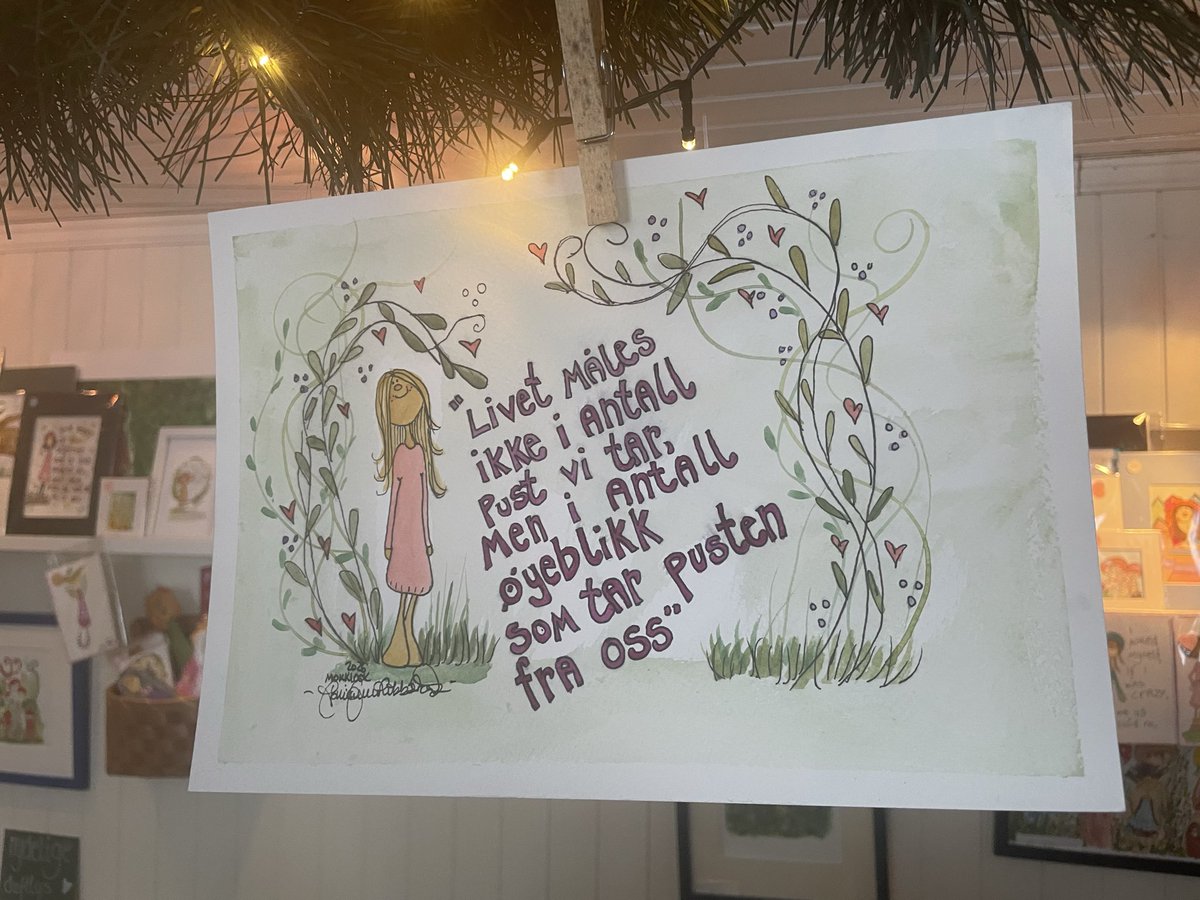 "Livet måles
ikke i antall
pust vi tar,
men i antall
øyeblikk
som tar pusten
fra oss"
2020